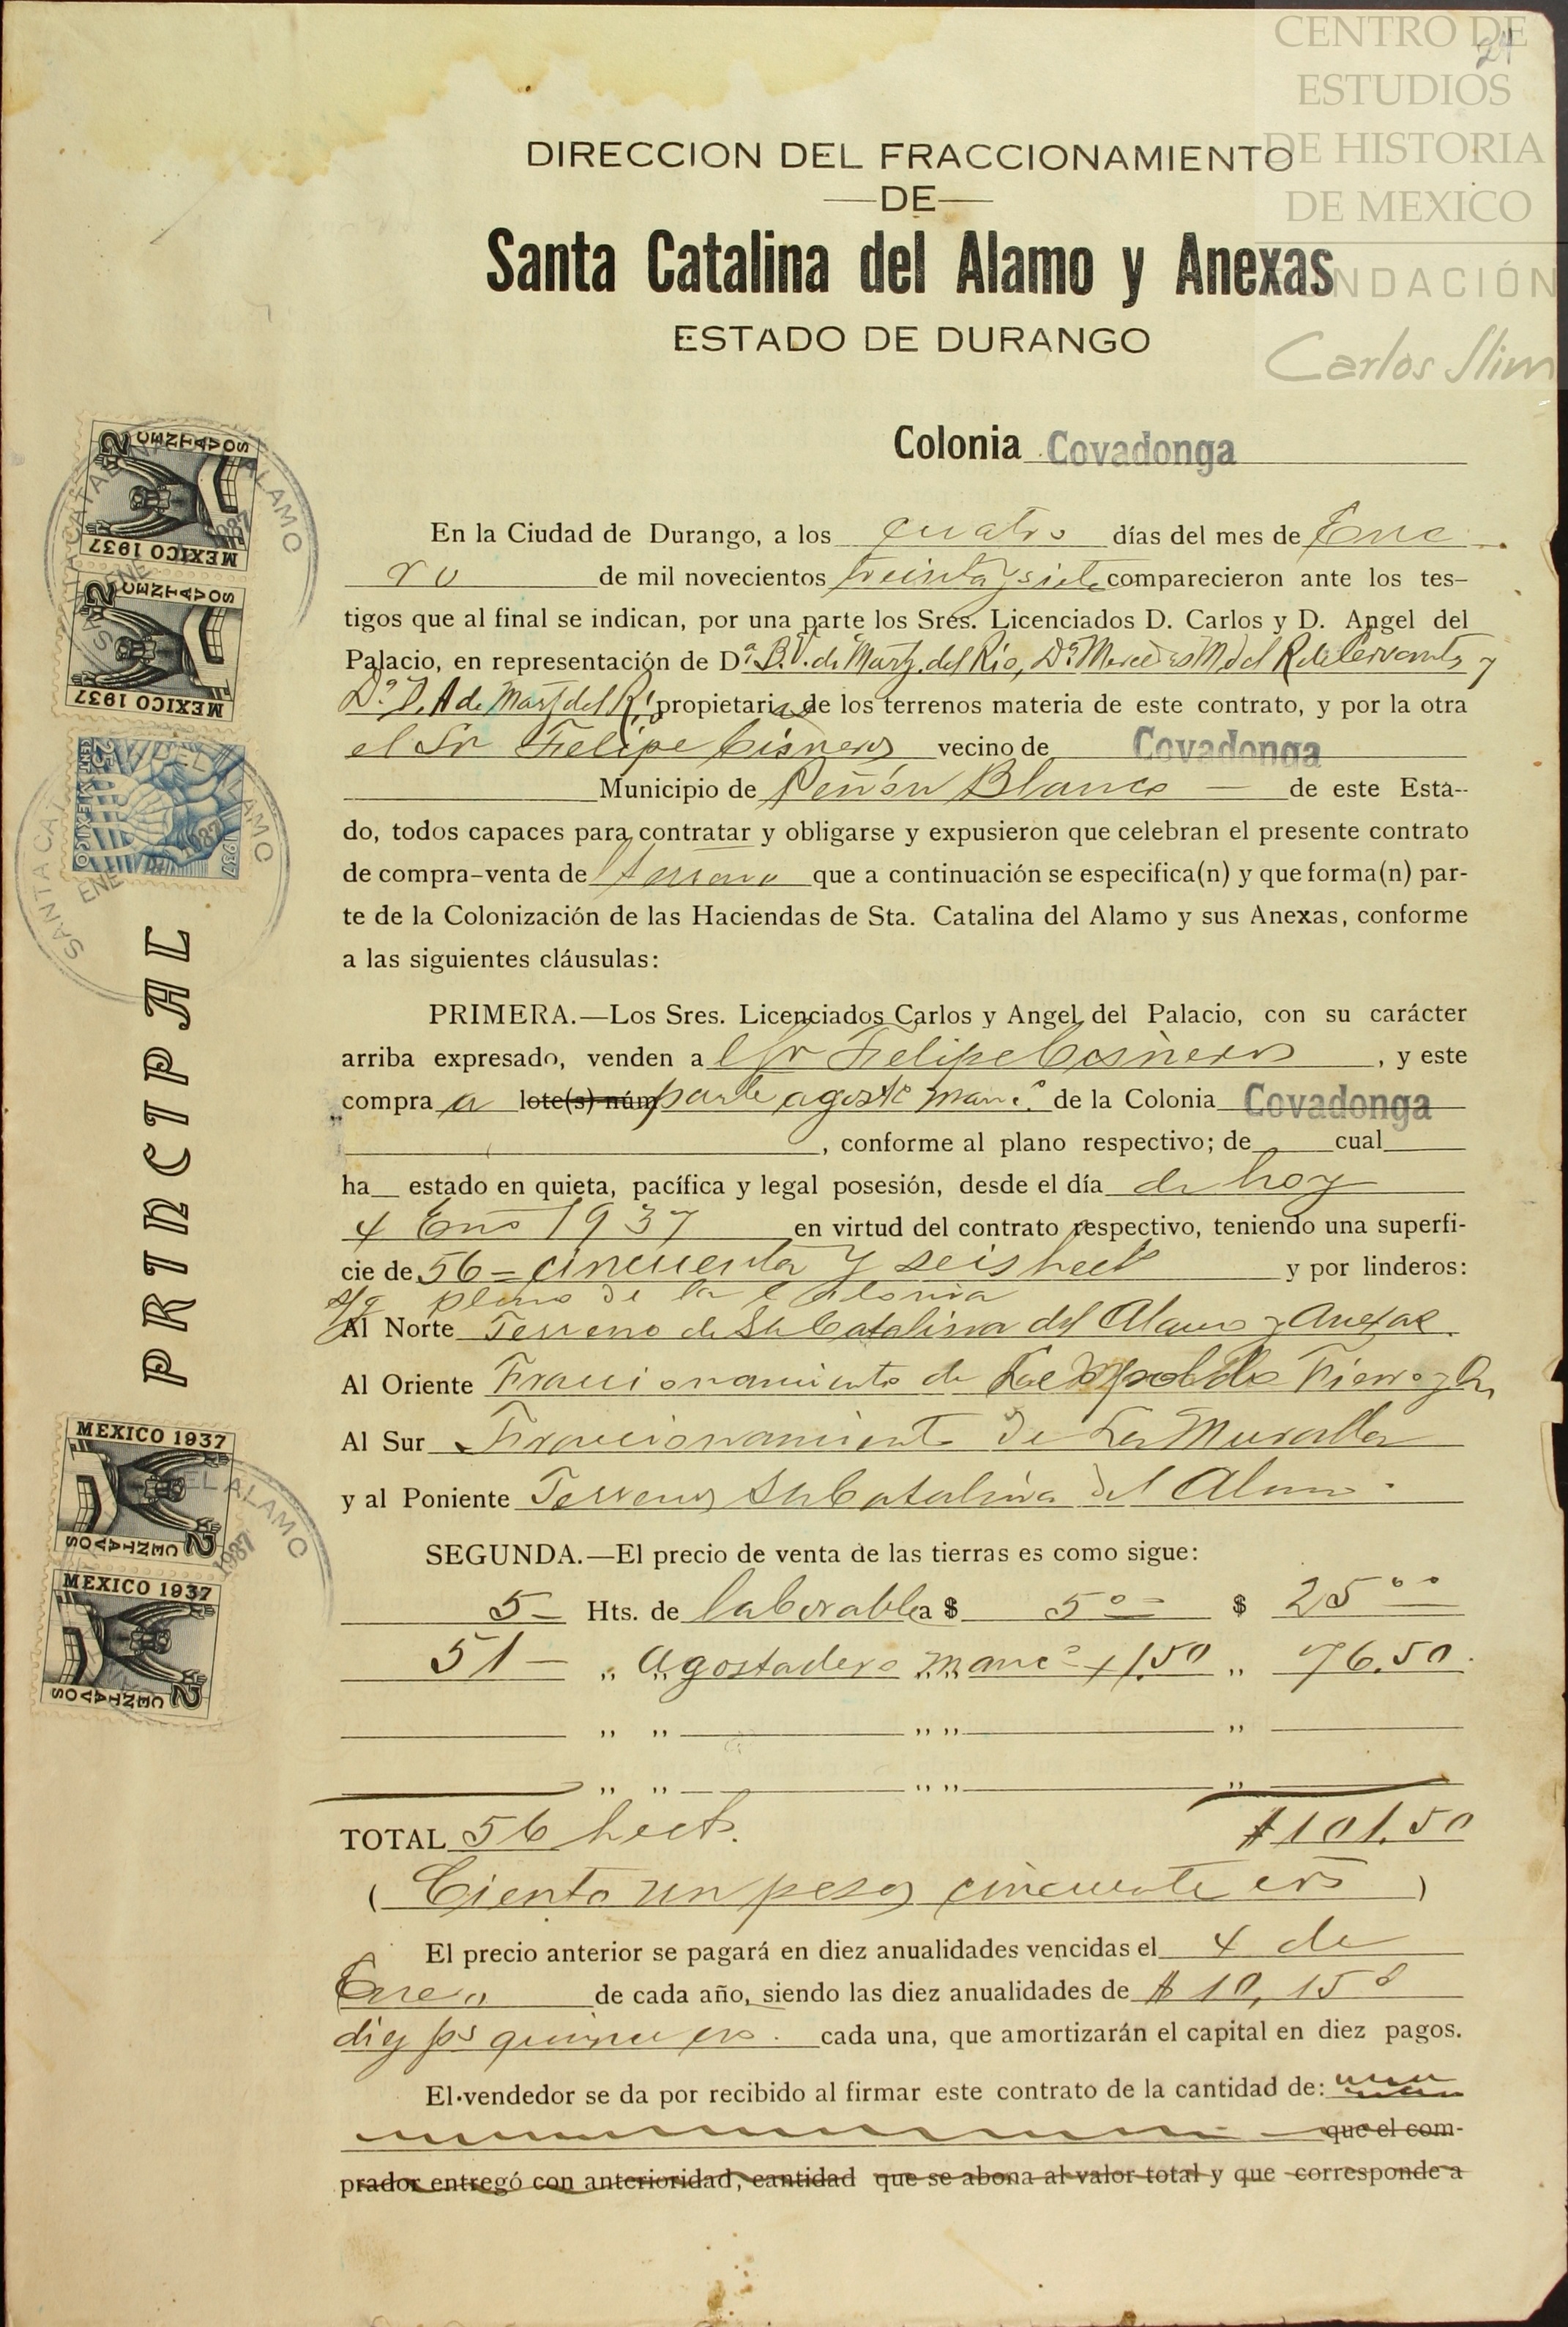 CENTRO DE
ESTUDIOS
DE HISTORIA
DE MEXICO
FUNDACIÓN
Carlos Slim
24
DIRECCION DEL FRACCIONAMIENTO
—DE—
Santa Catalina del Alamo y Anexas
ESTADO DE DURANGO
Colonia Covadonga
En la Ciudad de Durango, a los cuatro días del mes de Ene
ro de mil novecientos treinta y siete comparecieron ante los tes-
tigos que al final se indican, por una parte los Sres. Licenciados D. Carlos y D. Angel del
Palacio, en representación de Dª B. V. de Martz. del Río, Dª Mercedes M. del R. de Cervantes y
Dª D. A de Martz del Río propietarias de los terrenos materia de este contrato, y por la otra
el Sr Felipe Cisneros vecino de Covadonga
Municipio de Peñón Blanco — de este Esta-
do, todos capaces para contratar y obligarse y expusieron que celebran el presente contrato
de compra-venta de terreno que a continuación se especifica(n) y que forma(n) par-
te de la Colonización de las Haciendas de Sta. Catalina del Alamo y sus Anexas, conforme
a las siguientes cláusulas:
PRIMERA.—Los Sres. Licenciados Carlos y Angel del Palacio, con su carácter
arriba expresado, venden al Sr Felipe Cisneros, y este
compra a lote(s) núm parte agoste manc. de la Colonia Covadonga
, conforme al plano respectivo; de cual
ha estado en quieta, pacífica y legal posesión, desde el día de hoy
4 Eno 1937 en virtud del contrato respectivo, teniendo una superfi-
cie de 56 = cincuenta y seis hect y por linderos:
s/g plano de la Colonia
Al Norte Terreno de Sta Catalina del Alamo y Anexas
Al Oriente Fraccionamiento de Fierro y
Al Sur Fraccionamiento de La Muralla
y al Poniente Terrenos Sta Catalina del Alamo.
SEGUNDA.—El precio de venta de las tierras es como sigue:
5- Hts. de laborable a $ 5 00 $ 25 00
51 — „ Agostadero manc 1.50 „ 76.50
„ „ „ „ „
„ „ „ „ „
TOTAL 56 hects. $101.50
( Ciento un pesos cincuenta cvs )
El precio anterior se pagará en diez anualidades vencidas el 4 de
Enero de cada año, siendo las diez anualidades de $ 10,15
diez ps quince cvs. cada una, que amortizarán el capital en diez pagos.
El vendedor se da por recibido al firmar este contrato de la cantidad de:
que el com-
prador entregó con anterioridad, cantidad que se abona al valor total y que corresponde a
PRINCIPAL
2 CENTAVOS
MEXICO 1937
2 CENTAVOS
MEXICO 1937
SANTA CATALINA DEL ALAMO
ENE 1937
MEXICO 1937
2 CENTAVOS
MEXICO 1937
2 CENTAVOS